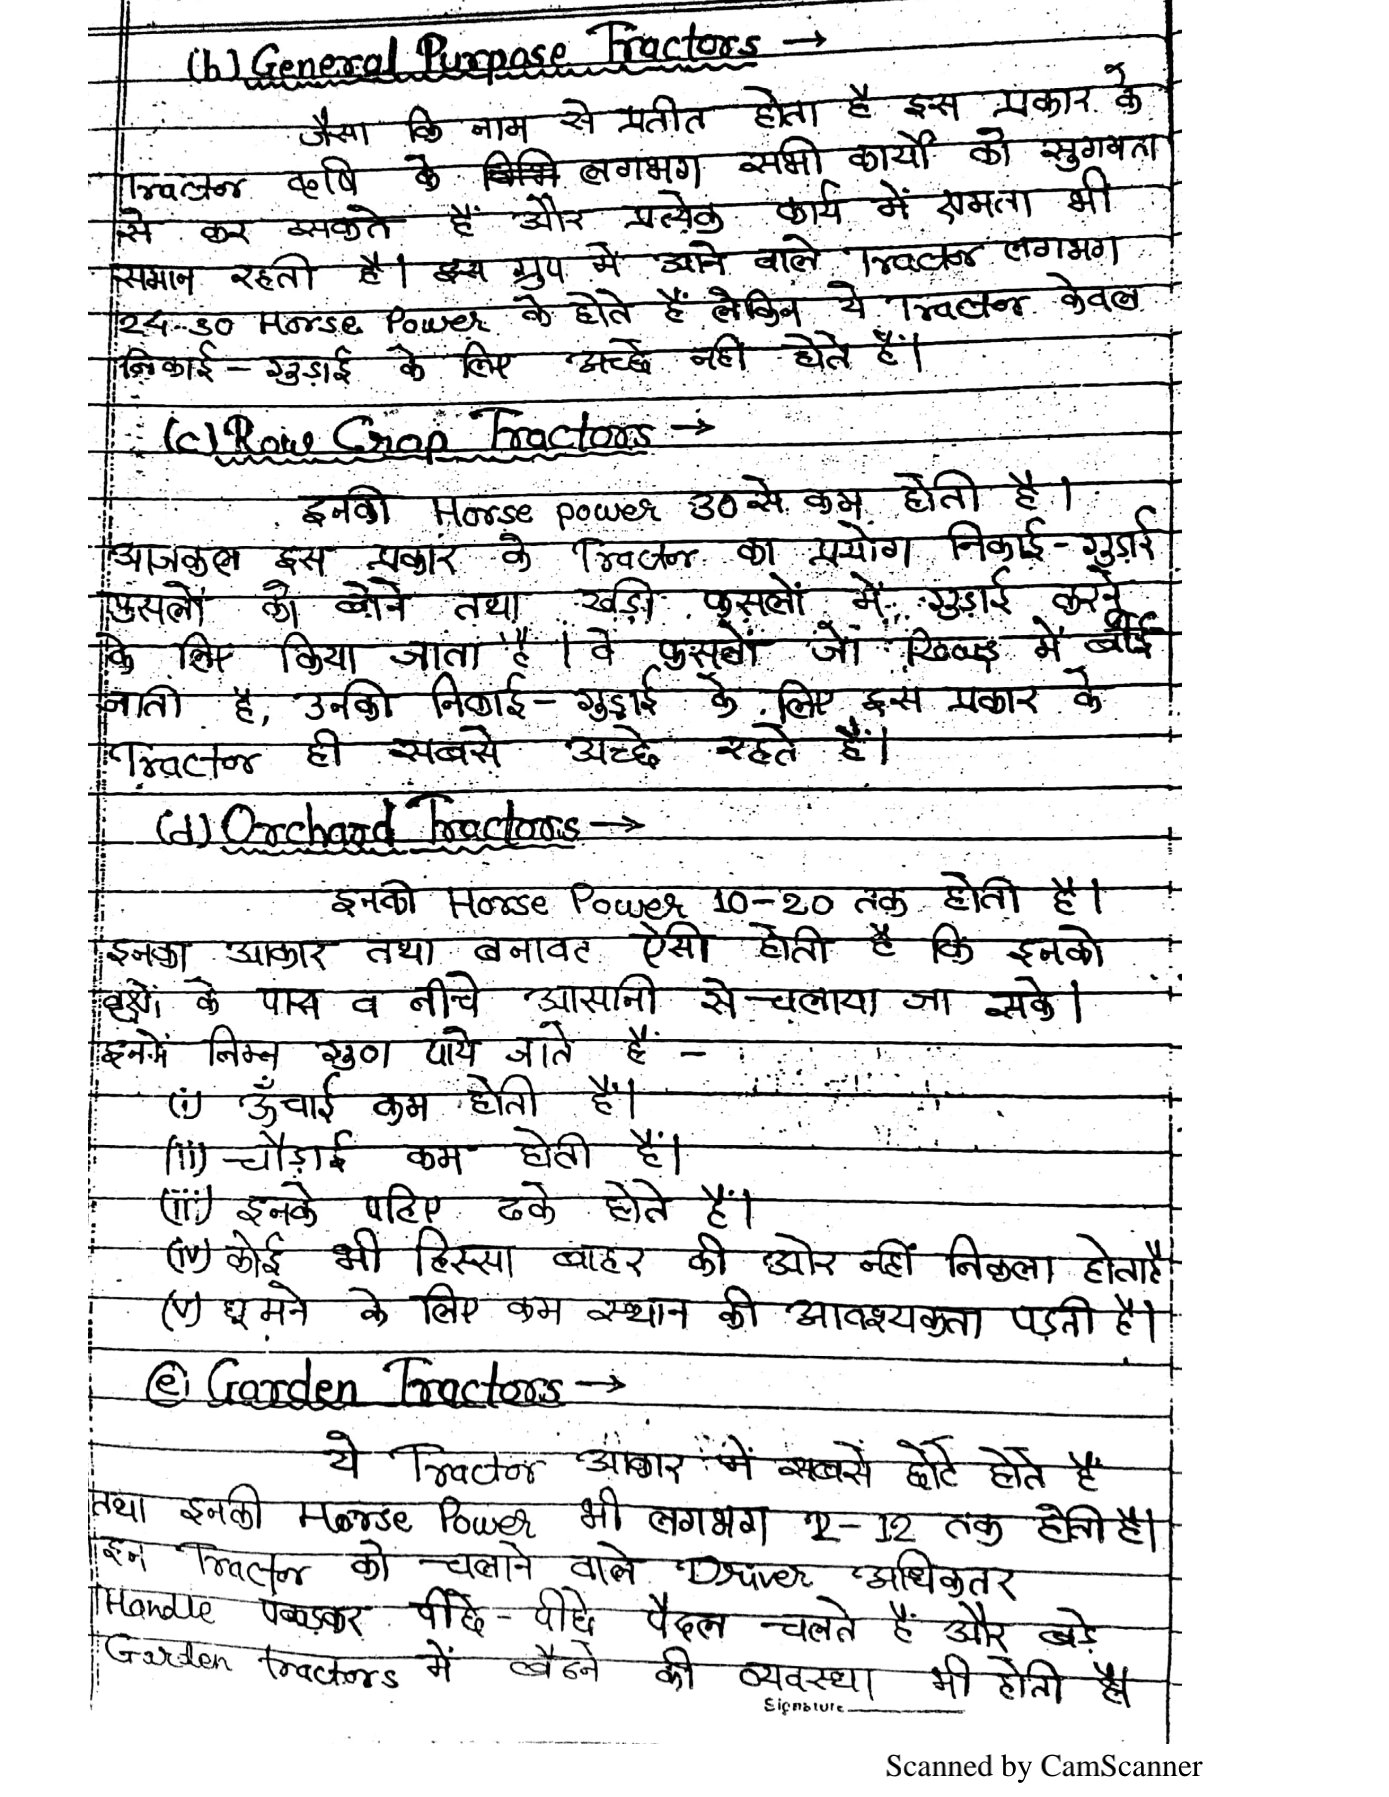 (b) General Purpose Tractors →
जैसा कि नाम से प्रतीत होता है इस प्रकार के
Tractor कृषि के लगभग सभी कार्यों को सुगमता
से कर सकते हैं और प्रत्येक कार्य में क्षमता भी
समान रहती है। इस ग्रुप में आने वाले Tractor लगभग
24-30 Horse Power के होते हैं लेकिन ये Tractor केवल
निकाई - गुड़ाई के लिए अच्छे नहीं होते हैं।
(c) Row Crop Tractors →
इनकी Horse power 30 से कम होती है।
आजकल इस प्रकार के Tractor का प्रयोग निकाई - गुड़ाई
फसलों को बोने तथा खड़ी फसलों में गुड़ाई करने
के लिए किया जाता है। वे फसलें जो में बोई
जाती है, उनकी निकाई - गुड़ाई के लिए इस प्रकार के
Tractor ही सबसे अच्छे रहते हैं।
(d) Orchard Tractors →
इनकी Horse Power 10-20 तक होती है।
इनका आकार तथा बनावट ऐसी होती है कि इनको
वृक्षों के पास व नीचे आसानी से चलाया जा सके।
इनमें निम्न गुण पाये जाते हैं -
(i) ऊँचाई कम होती है।
(ii) चौड़ाई कम होती हैं।
(iii) इनके पहिए ढके होते हैं।
(iv) कोई भी हिस्सा बाहर की ओर नहीं निकला होता है
(v) घूमने के लिए कम स्थान की आवश्यकता पड़ती है।
(e) Garden Tractors →
ये Tractor आकार में सबसे छोटे होते हैं
तथा इनकी Horse Power भी लगभग 1-12 तक होती है।
इन Tractor को चलाने वाले Driver अधिकतर
Handle पकड़कर पीछे - पीछे पैदल चलते हैं और बड़े
Garden tractors में बैठने की व्यवस्था भी होती है।
Signature
Scanned by CamScanner